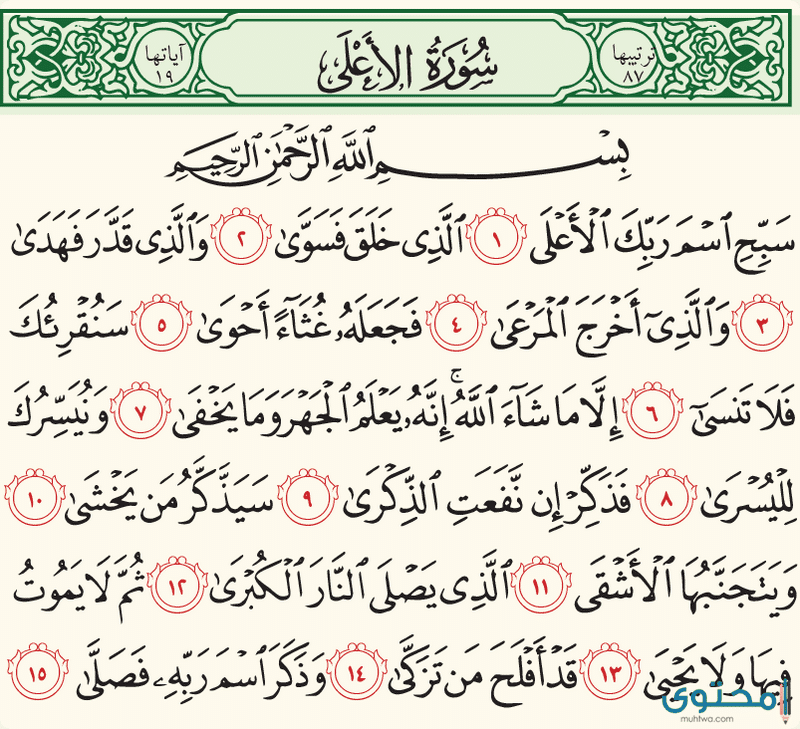 ترتيبها
٨٧
سُورَةُ الأَعْلَى
آياتها
١٩
بِسْمِ ٱللَّهِ ٱلرَّحْمَٰنِ ٱلرَّحِيمِ
سَبِّحِ ٱسْمَ رَبِّكَ ٱلْأَعْلَى ١ ٱلَّذِى خَلَقَ فَسَوَّىٰ ٢ وَٱلَّذِى قَدَّرَ فَهَدَىٰ
٣ وَٱلَّذِىٓ أَخْرَجَ ٱلْمَرْعَىٰ ٤ فَجَعَلَهُۥ غُثَآءً أَحْوَىٰ ٥ سَنُقْرِئُكَ
فَلَا تَنسَىٰٓ ٦ إِلَّا مَا شَآءَ ٱللَّهُ ۚ إِنَّهُۥ يَعْلَمُ ٱلْجَهْرَ وَمَا يَخْفَىٰ ٧ وَنُيَسِّرُكَ
لِلْيُسْرَىٰ ٨ فَذَكِّرْ إِن نَّفَعَتِ ٱلذِّكْرَىٰ ٩ سَيَذَّكَّرُ مَن يَخْشَىٰ ١٠
وَيَتَجَنَّبُهَا ٱلْأَشْقَى ١١ ٱلَّذِى يَصْلَى ٱلنَّارَ ٱلْكُبْرَىٰ ١٢ ثُمَّ لَا يَمُوتُ
فِيهَا وَلَا يَحْيَىٰ ١٣ قَدْ أَفْلَحَ مَن تَزَكَّىٰ ١٤ وَذَكَرَ ٱسْمَ رَبِّهِۦ فَصَلَّىٰ ١٥
محتوى
muhtwa.com